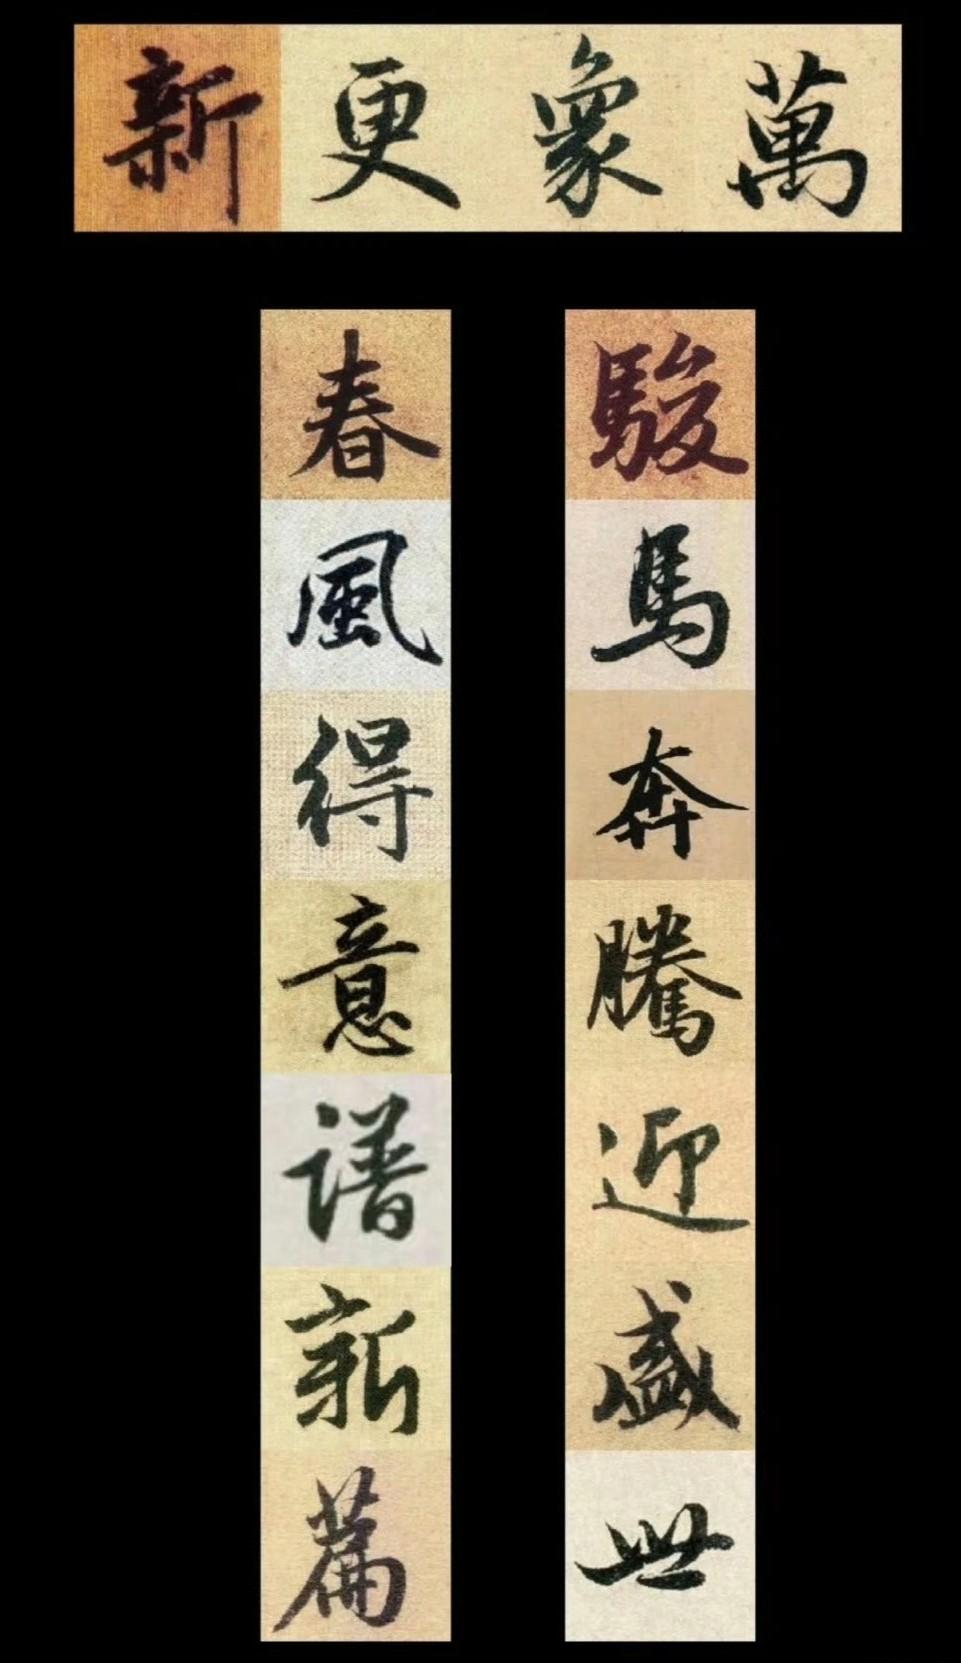 萬象更新
駿馬奔騰迎盛世
春風得意譜新篇